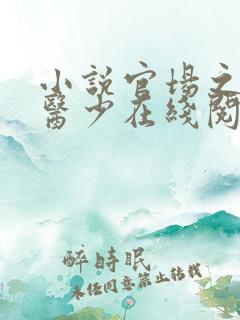 小說官場之
醫少在綫閱
醉時眠
未經同意禁止轉載